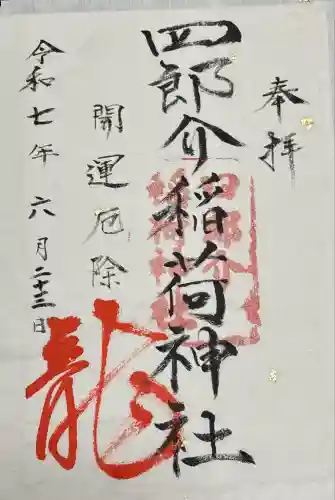 奉拝
四郎介稲荷神社
開運厄除
龍
令和七年六月二十三日